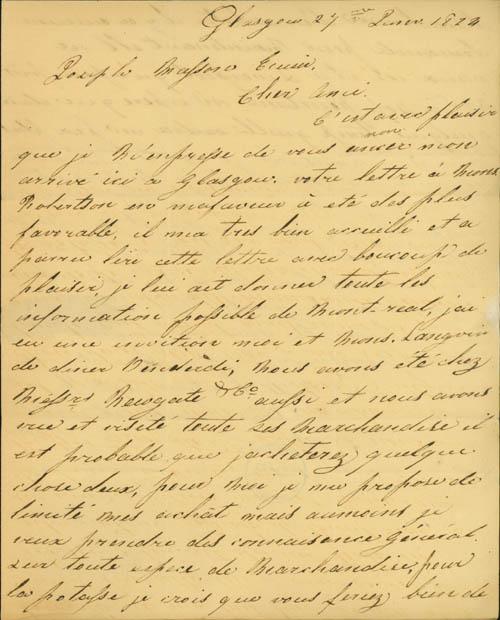 Glasgow 27me Janv. 1824
Joseph Masson Ecuier.
Cher Ami.
C'est avec plaisir
que je m'enpresse de vous anoncer mon
arrivé ici a Glasgow. votre lettre à Mons.
Robertson en ma faveur à eté des plus
favorable, il ma tres bien acceuilli et a
parru lire cette lettre avec boucoup de
plaisir, je lui ait donner toute les
information possible de Mont-real, j'ai
eu une invition moi et Mons. Langvin
de diner Vendredi, Nous avons été chez
Messrs Newgate & Co aussi et nous avons
vue et visité toute ses Marchandise il
est probable que j'acheterez quelque
chose deux, pour Moi je me propose de
limité mes achat mais aumoins je
veux prendre des connaisence Général
sur toute espece de Marchandise, pour
la potasse je crois que vous feriez bien de